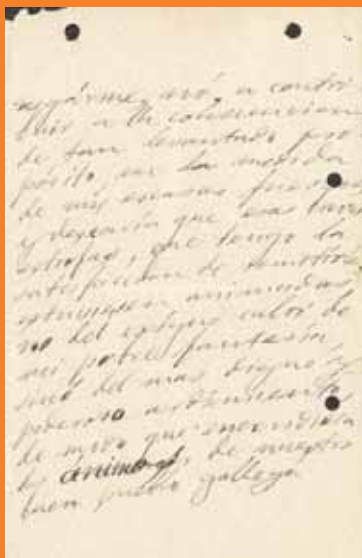 negárme, nó, a contri
buir a la consecucion
de tan levantado pro
pósito, en la medida
de mis escasas fuerzas
y desearía que esas tres
estrofas, que tengo la
satisfaccion de remitir
estuviesen animadas,
no del calor de
mi pobre fantasía,
sinó del mas digno y
poderoso
de modo que
los animos, de nuestro
buen pueblo gallego